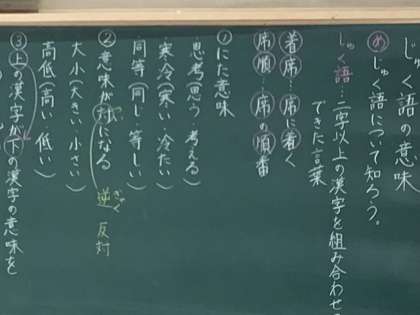 じゅく語の意味
め じゅく語について知ろう。
じゅく語 二字以上の漢字を組み合わせ
できた言葉
着席…席に着く
席順…席の順番
①にた意味
思考(思う・考える)
寒冷(寒い・冷たい)
同等(同じ・等しい)
②意味が対になる
逆 ぎゃく 反対
大小(大きい・小さい)
高低(高い・低い)
③上の漢字が下の漢字の意味を